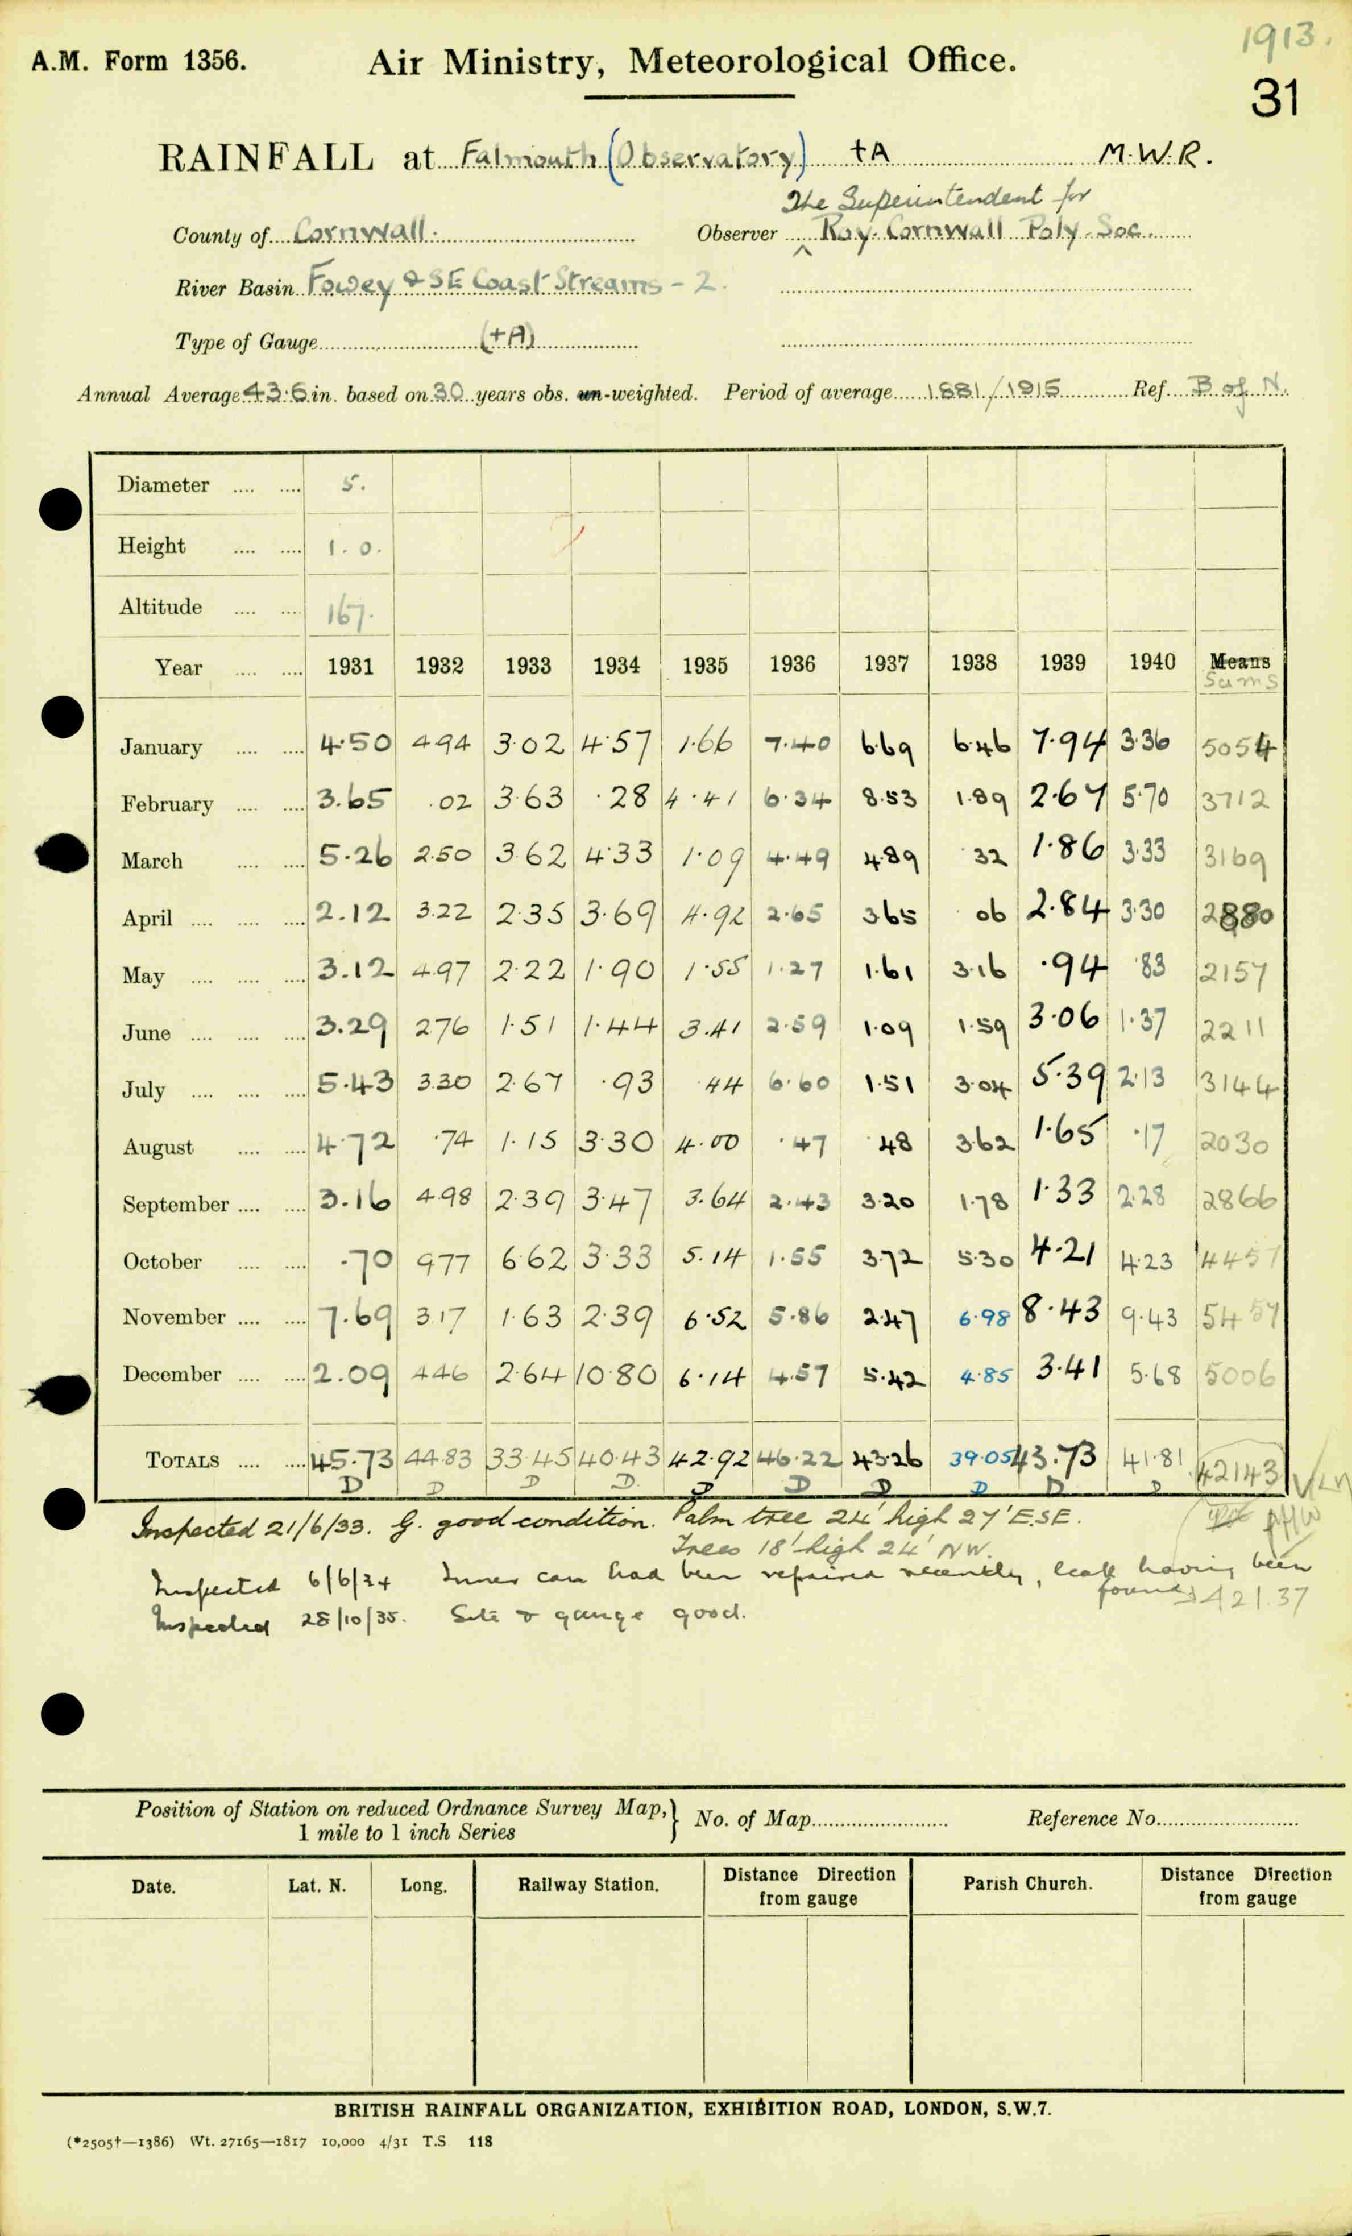 1913.
A.M. Form 1356. Air Ministry, Meteorological Office.
31
RAINFALL at Falmouth (Observatory) +A M.W.R.
The Superintendent for
County of Cornwall. Observer Roy. Cornwall Poly. Soc.
River Basin Fowey & SE Coast Streams - 2.
Type of Gauge (+A)
Annual Average 43.6 in. based on 30 years obs. un-weighted. Period of average 1881/1915 Ref. B of N.
Diameter 5.
Height 1.0.
Altitude 167.
Year 1931 1932 1933 1934 1935 1936 1937 1938 1939 1940 Means
Sums
January 4.50 4.94 3.02 4.57 1.66 7.40 6.69 6.46 7.94 3.36 5054
February 3.65 .02 3.63 .28 4.41 6.34 8.53 1.89 2.67 5.70 3712
March 5.26 2.50 3.62 4.33 1.09 4.49 4.89 .32 1.86 3.33 3169
April 2.12 3.22 2.35 3.69 4.92 2.65 3.65 .06 2.84 3.30 2880
May 3.12 4.97 2.22 1.90 1.55 1.27 1.61 3.16 .94 .83 2157
June 3.29 2.76 1.51 1.44 3.41 2.59 1.09 1.59 3.06 1.37 2211
July 5.43 3.30 2.67 .93 .44 6.60 1.51 3.04 5.39 2.13 3144
August 4.72 .74 1.15 3.30 4.00 .47 .48 3.62 1.65 .17 2030
September 3.16 4.98 2.39 3.47 3.64 2.43 3.20 1.78 1.33 2.28 2866
October .70 9.77 6.62 3.33 5.14 1.55 3.72 5.30 4.21 4.23 4457
November 7.69 3.17 1.63 2.39 6.52 5.86 2.47 6.98 8.43 9.43 5457
December 2.09 4.46 2.64 10.80 6.14 4.57 5.42 4.85 3.41 5.68 5006
TOTALS 45.73 44.83 33.45 40.43 42.92 46.22 43.26 39.05 43.73 41.81 42143
D D D D. D D D D D D
Inspected 21/6/33. G. good condition. Palm tree 24' high 27' E.S.E.
Trees 18' high 24' NW.
Inspected 6/6/34 Inner can had been repaired recently, leak having been
found 421.37
Inspected 28/10/35. Site & gauge good.
Position of Station on reduced Ordnance Survey Map, } No. of Map Reference No.
1 mile to 1 inch Series
Date. Lat. N. Long. Railway Station. Distance Direction from gauge Parish Church. Distance Direction from gauge
BRITISH RAINFALL ORGANIZATION, EXHIBITION ROAD, LONDON, S.W.7.
(*2505†—1386) Wt. 27165—1817 10,000 4/31 T.S 118